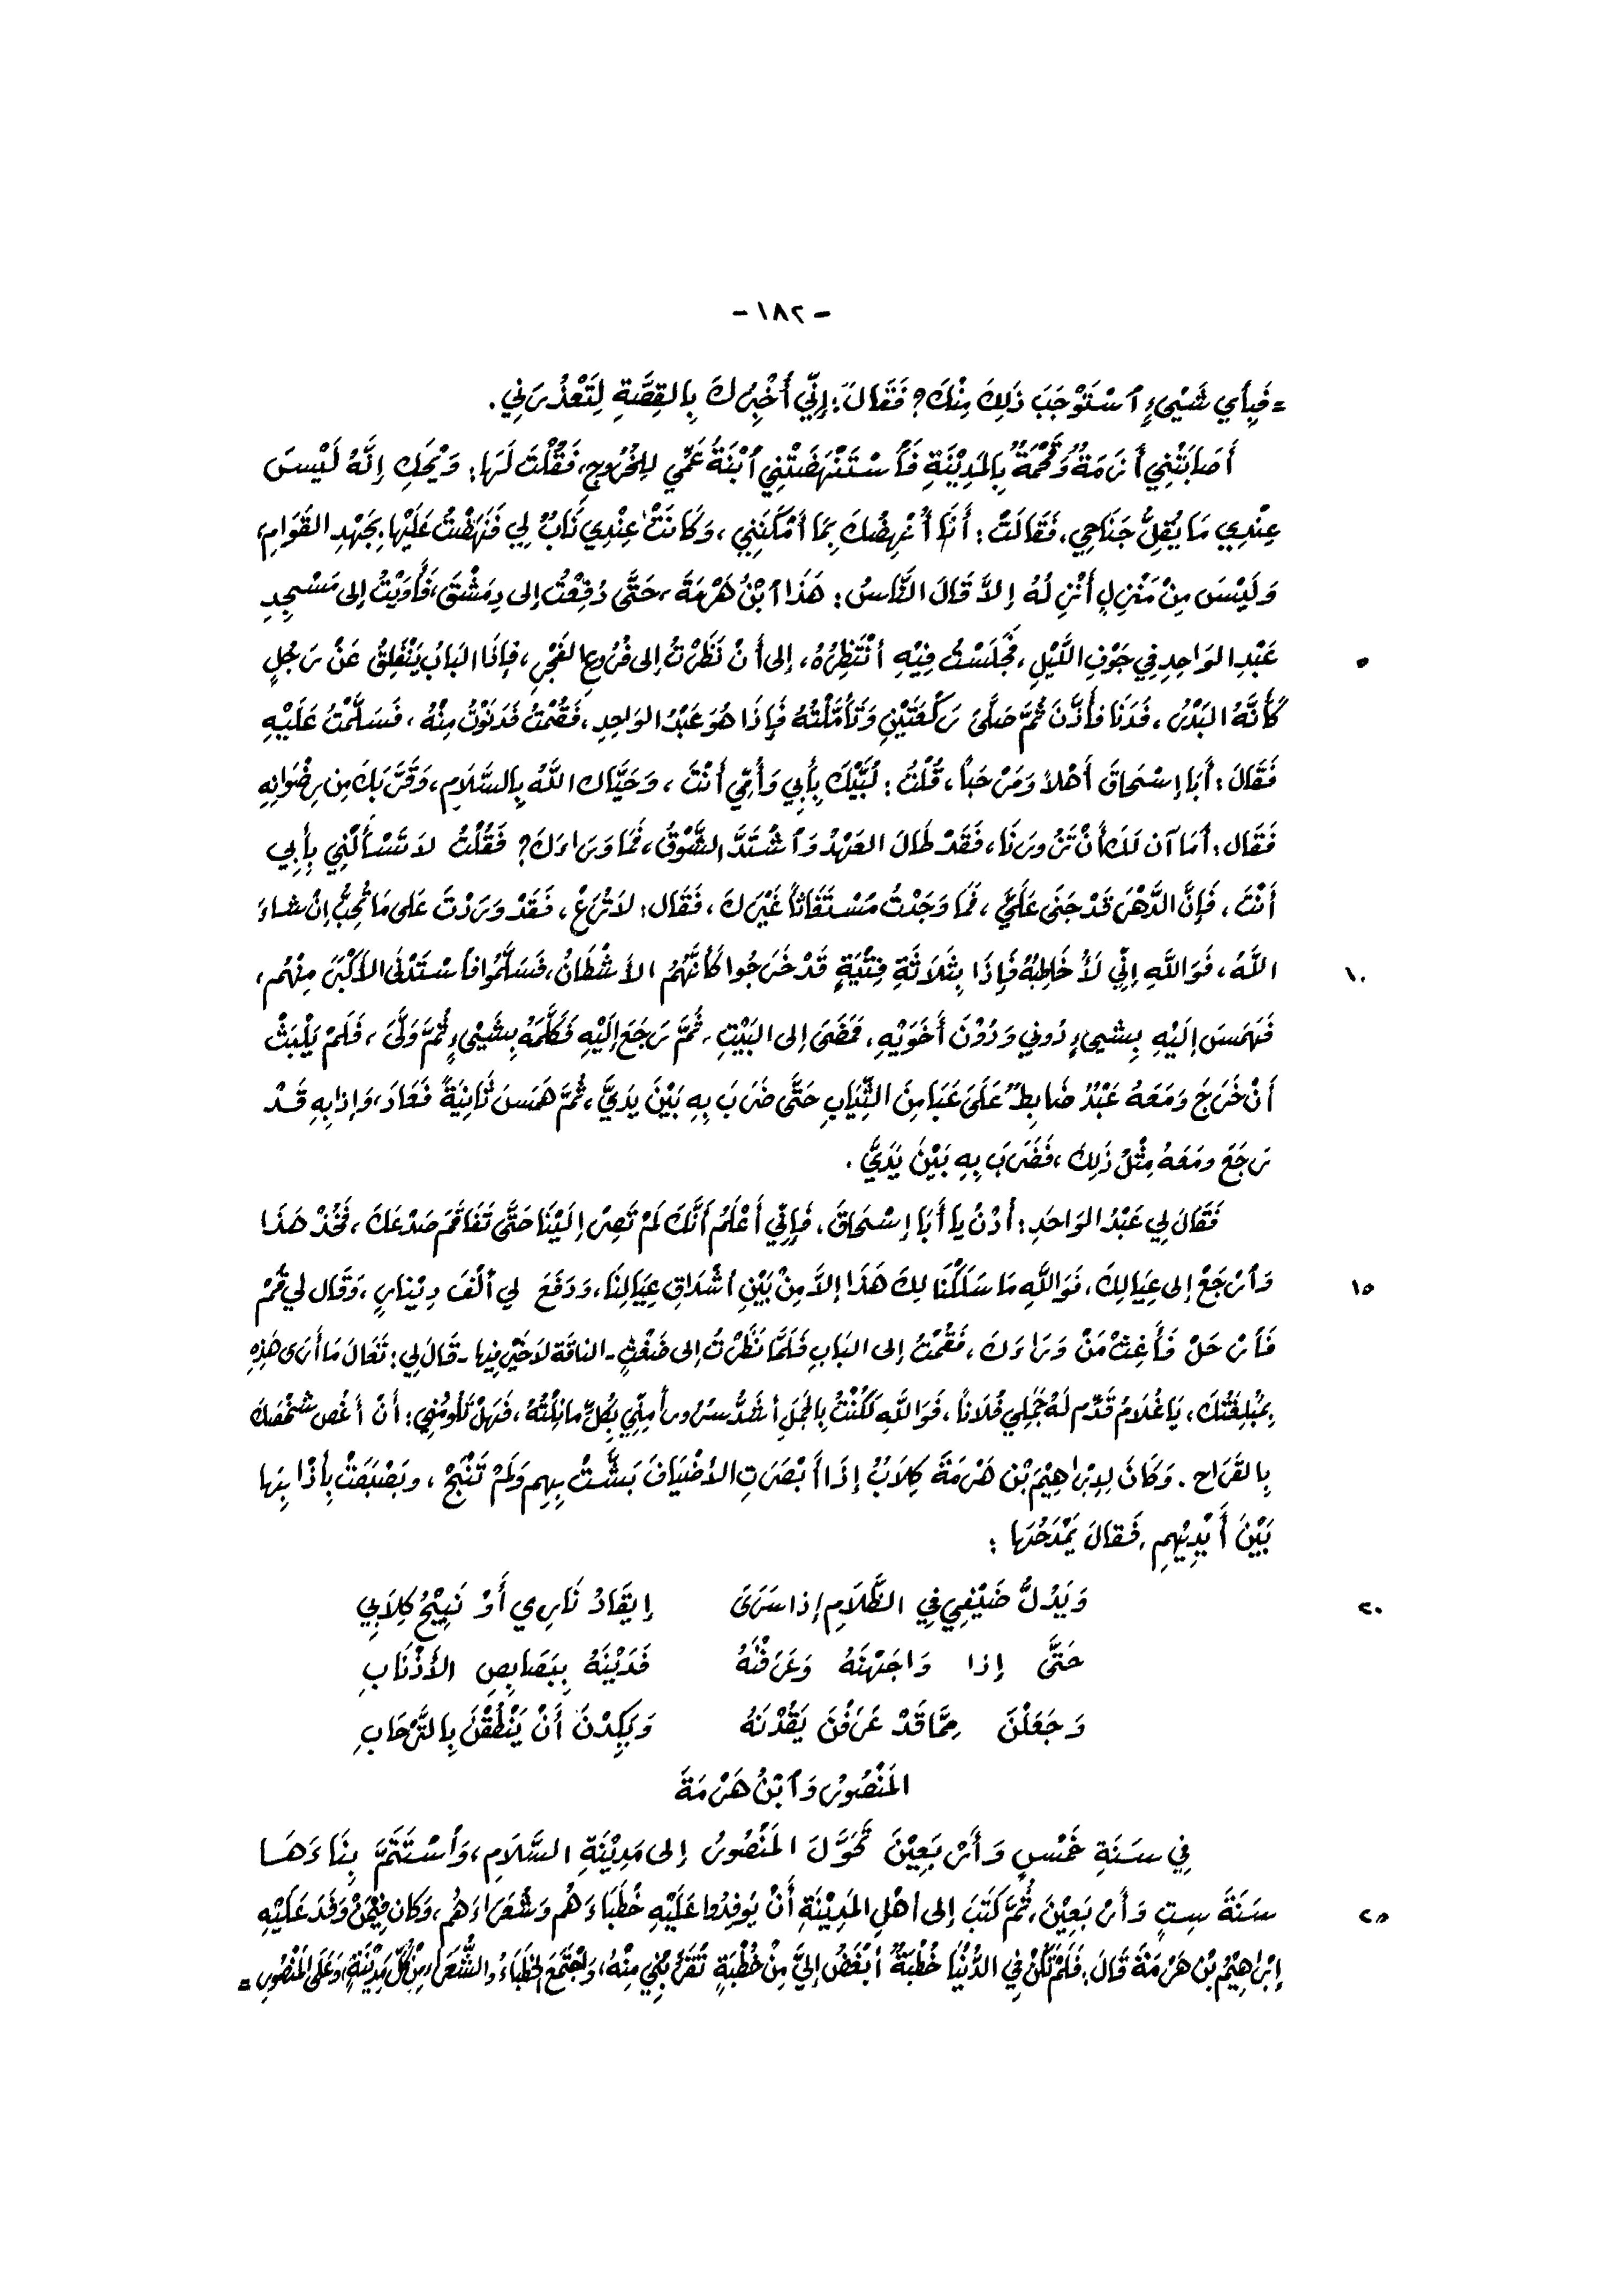 - ١٨٢ -
= فَبِأَي شَيْىءٍ ٱسْتَوْجَبَ ذَلِكَ مِنْكَ؟ فَقَالَ: إِنِّي أُخْبِرُكَ بِالقِصَّةِ لِتَعْذُرَنِي.
أَصَابَتْنِي أَزَمَةٌ وَقَحْمَةٌ بِالمَدِيْنَةِ فَٱسْتَنْهَضَتْنِي ٱبْنَةُ عَمِّي لِلخُرُوجِ، فَقُلْتُ لَهَا: وَيْحَكِ إِنَّهُ لَيْسَ
عِنْدِي مَا يُقِلُّ جَنَاحِي، فَقَالَتْ: أَنَا أُنْهِضُكَ بِمَا أَمْكَنَنِي، وَكَانَتْ عِنْدِي نَابٌ لِي فَنَهَضْتُ عَلَيْهَا بِجَهْدِ القَوَامِ،
وَلَيْسَ مِنْ مَنْزِلٍ أَنْزِلُهُ إِلاَّ قَالَ النَّاسُ: هَذَا ٱبْنُ هَرْمَةَ، حَتَّى دُفِعْتُ إلى دِمَشْقَ، فَأَوَيْتُ إلى مَسْجِدِ
٥ عَبْدِ الوَاحِدِ فِي جَوْفِ اللَّيْلِ، فَجَلَسْتُ فِيْهِ أَنْتَظِرُهُ، إلى أَنْ نَظَرْتُ إلى فُرُوعِ الفَجْرِ، فَإِذَا البَابُ يَنْفَلِقُ عَنْ رَجُلٍ
كَأَنَّهُ البَدْرُ، فَدَنَا فَأَذَّنَ ثُمَّ صَلَّى رَكْعَتَيْنِ وَتَأَمَّلْتُهُ فَإِذَا هُوَ عَبْدُ الوَاحِدِ، فَقُمْتُ فَدَنَوْتُ مِنْهُ، فَسَلَّمْتُ عَلَيْهِ
فَقَالَ: أَبَا إِسْحَاقَ أَهْلاً وَمَرْحَباً، قُلْتُ: لَبَّيْكَ بِأَبِي وَأُمِّي أَنْتَ، وَحَيَّاكَ اللَّهُ بِالسَّلاَمِ، وَقَرَّبَكَ مِن رِضْوَانِهِ
فَقَالَ: أَمَا آن لَكَ أَنْ تَزُورَنَا، فَقَدْ طَالَ العَهْدُ وَٱشْتَدَّ الشَّوْقُ، فَمَا وَرَاءَكَ؟ فَقُلْتُ لاَ تَسْأَلْنِي بِأَبِي
أَنْتَ، فَإِنَّ الدَّهْرَ قَدْ جَنَى عَلَيَّ، فَمَا وَجَدْتُ مُسْتَغَاثاً غَيْرَكَ، فَقَالَ: لاَ تُرَعْ، فَقَدْ وَرَدْتَ عَلى مَا تُحِبُّ إِنْ شاءَ
١٠ اللَّهُ، فَوَاللَّهِ إِنِّي لَأُخَاطِبُهُ فَإِذَا بِثَلاَثَةِ فِتْيَةٍ قَدْ خَرَجُوا كَأَنَّهُمُ الأَشْطَانُ، فَسَلَّمُوا فَاسْتَدْنَى الأَكْبَرَ مِنْهُم،
فَهَمَسَ إِلَيْهِ بِشَيىءٍ دُونِي وَدُوْنَ أَخَوَيْهِ، فَمَضَى إلى البَيْتِ، ثُمَّ رَجَعَ إِلَيْهِ فَكَلَّمَهُ بِشَيْىءٍ ثُمَّ وَلَّى، فَلَمْ يَلْبَثْ
أَنْ خَرَجَ وَمَعَهُ عَبْدٌ ضَابِطٌ عَلَى عَبَا مِنَ الثِّيَابِ حَتَّى ضَرَبَ بِهِ بَيْنَ يَدَيَّ، ثُمَّ هَمَسَ ثَانِيَةً فَعَادَ، وَإِذا بِهِ قَدْ
رَجَعَ ومَعَهُ مِثْلُ ذَلِكَ، فَضَرَبَ بِهِ بَيْنَ يَدَيَّ.
فَقَالَ لِي عَبْدُ الوَاحَدِ: أُدْنُ يا أَبَا إِسْحَاقَ، فَإِنِّي أَعْلَمُ أَنَّكَ لَمْ تَصِرْ إِلَيْنَا حَتَّى تَفَاقَمَ صَدْعُكَ، فَخُذْ هَذَا
١٥ وَٱرْجَعْ إلى عِيَالِكَ، فَوَاللَّهِ مَا سَلَلْنَا لَكَ هَذَا إلاَّ مِنْ بَيْنِ أَشْدَاقِ عِيَالِنَا، وَدَفَعَ لِي أَلْفَ دِيْنَارٍ، وَقَال لِي قُمْ
فَٱرْحَلْ فَأَغِثْ مَنْ وَرَاءَكَ، فَقُمْتُ إلى البَابِ فَلَمَّا نَظَرْتُ إلى ضَغْثٍ - الناقة لاَ خَيْرَ فِيها - قَالَ لِي: تَعَالَ مَا أَرَى هَذِهِ
بِمُبْلِغَتِكَ، يَا غُلاَمُ قَدِّم لَهُ جَمَلِي فُلاَناً، فَوَاللَّهِ لَكُنْتُ بِالجَمَلِ أَشَدُّ سُرُوراً مِنِّي بِكُلِّ مانِلْتُهُ، فَهَلْ تَلُومُنِي: أَنْ أَغُصَّ شَخْصَكَ
بِالقَرَاحِ. وَكَانَ لِإِبْرَاهِيْمَ بْنِ هَرْمَةَ كِلاَبٌ إِذَا أَبْصَرَتِ الأَضْيَافَ بَشَّتْ بِهِم وَلَمْ تَنْبَحْ، وبَصْبَصَتْ بِأَذْنَابِهَا
بَيْنَ أَيْدِيْهِمِ، فَقَالَ يَمْدَحُهَا:
٢٠ وَيَدُلُّ ضَيْفِي فِي الظَّلاَمِ إذا سَرَى إِيقَادُ نَارِي أَوْ نَبِيْحُ كِلاَبِي
حَتَّى إذا وَاجَهْنَهُ وَعَرَفْنَهُ فَدَيْنَهُ بِبَصَابِصِ الأَذْنَابِ
وَجَعَلْنَ مِمَّا قَدْ عَرَفْنَ يَقُدْنَهُ وَيَكِدْنَ أَنْ يَنْطُقْنَ بِالتَّرْحَابِ
المَنْصُورُ وَٱبْنُ هَرْمَةَ
فِي سَنَةِ خَمْسٍ وَأَرْبَعِيْنَ تَحَوَّلَ المَنْصُورُ إلى مَدِيْنَةِ السَّلاَمِ، وَٱسْتَتَمَّ بِنَاءَهَا
٢٥ سَنَةَ سِتٍ وَأَرْبَعِيْنَ، ثُمَّ كَتَبَ إلى أَهْلِ المَدِيْنَةِ أَنْ يُوفِدُوا عَلَيْهِ خُطَبَاءَهُم وَشُعَرَاءَهُم، وَكَان فِيْمَنْ وَفَدَ عَلَيْهِ
إِبْرَاهِيْمُ بْنُ هَرْمَةَ قَالَ: فَلَمْ تَكُنْ فِي الدُّنْيَا خُطْبَةٌ أَبْغَضُ إِلَيَّ مِنْ خُطْبَةٍ تُقَرِّبُنِي مِنْهُ، وَٱجْتَمَعَ الخُطَبَاءُ والشُّعَرَاءُ مِنْ كُلِّ مَدِيْنَةٍ، وَعَلَى المَنْصُورِ =